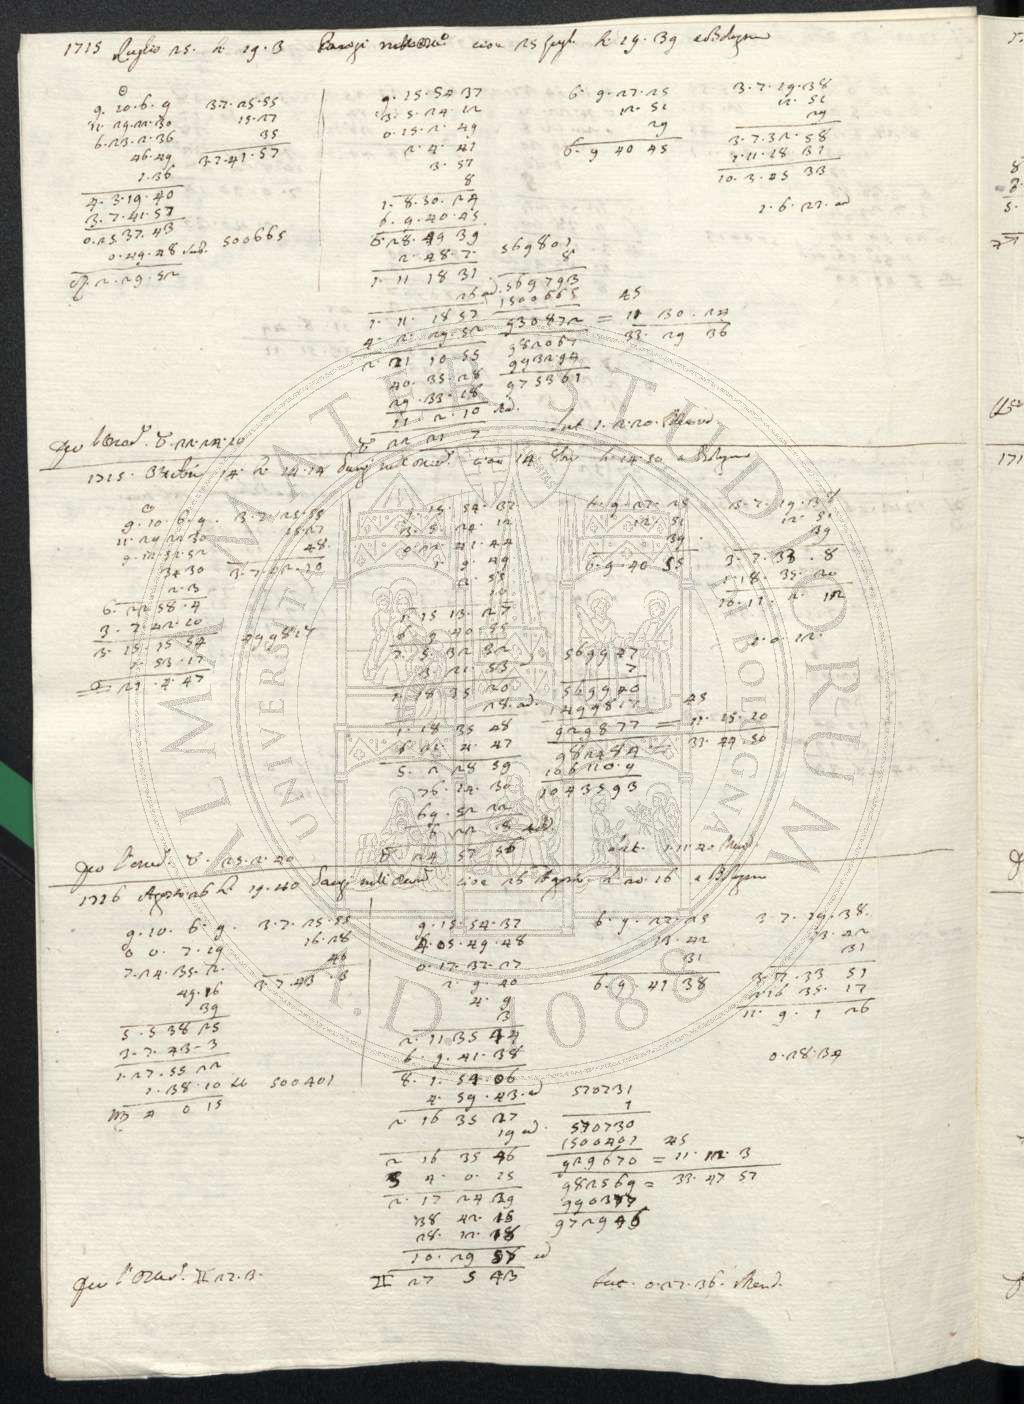 1715 Luglio 25. h 19. 3 Parigi nell'Osser.o cioe 25 Lugl. h 19. 39 a Bologna
9. 10. 6. 9
11. 29. 22. 30
6. 23. 2. 36
46. 49
1. 36
4. 3. 19. 40
3. 7. 41. 57
0. 25 37. 43
0. 49. 48 500665
2. 29. 52
3 7. 25. 55
15. 27
35
3 7. 41. 57
9. 15. 54 37
3. 5. 24. 12
0. 15. 2. 49
2. 4. 41
3. 57
8
1. 8. 30. 24
6. 9. 40. 45
6 28. 49 39
2. 48. 7.
1. 11 18 31
26 ad.
1. 11. 18 57
4. 2. 29. 52
2 21 10 55
40. 35. 28
29. 33. 18
11. 2. 10 ad.
♉ 22 21 7
569801
8
569793
1500665
930872 = 11 30. 24
45
33. 29 36
982067
993294
975361
6. 9. 27. 25
12. 51
29
6. 9 40 45
3. 7. 19. 38
12. 51
29
3. 7. 32. 58
1. 11. 18 31
10. 3. 45 33
1. 6. 27. ad
Lat. 1. 12. 20. Merid.
♉. 22. 24. 20
1715. 14. h 14. 14 Parigi nell'Osser. cioe 14 h 14. 50 a Bologna
9. 10 6. 9.
11. 29 22 30
9. 12. 51. 52
34 30
2. 3
6. 22 58. 4
3. 7. 42. 20
3. 15. 15 54
1. 53. 17
21. 4. 47
3. 7 25. 55
15. 27
48
3. 7. 42. 20
499817
9. 15. 54. 37
3. 5. 24. 12
0. 22. 41. 44
1. 9. 49
2. 55
10
1. 15 13. 27
6. 9 40. 55
7. 5. 32 32
3 21 53
1. 18 35 20
28. ad.
1. 18 35 48
6. 21. 4. 47
5. 2 28 59
76. 14. 30
69. 52 22
6 22 8 ad.
♉ 24 57 56
569947
7
569940
1499817
929877 = 11. 15. 10
45
33 44. 50
982484
106110. 9
1043593
6. 9. 27. 25
12. 51
39
6. 9. 40 55
3. 7. 19. 38
12. 51
39
3. 7. 33. 8
1. 18. 35. 20
10. 11. 2. 12
1. 0. 12.
Lat. 1. 11 40 Merid.
♉. 25. 2. 40
1716 Agosto 26 h 19. 40 Parigi nell'Osser.o cioe 26 Agosto h 20. 16 a Bologna
9. 10. 6. 9.
0 0. 7. 19
7. 24. 35. 2.
49. 16
39
5. 5 38 25
3. 7. 43. 3
1. 27. 55 22
1. 38. 10 500401
♍ 4 0 15
3. 7. 25. 55
16. 28
40
3. 7. 43. 3
9. 15. 54. 37
4. 05. 49. 48
0. 17. 37. 27
2. 9. 40
4. 9
3
2. 11 35 44
6. 9. 41. 38
8. 1. 54 06
4. 59. 43. ad
2 16 35 27
19 ad.
2 16 35 46
5 4. 0. 15
2. 17 24 39
38 42 15
28. 12 18
10. 29 57 ad
♊ 27 5 43
570731
1
570730
1500401
929670 = 11. 12. 3
45
982569 = 33. 47 57
990377
972946
6. 9. 27. 25
13. 42
31
6. 9. 41 38
3. 7. 19. 38.
13. 42
31
3. 7. 33 51
2 16 35. 17
11. 9. 1 26
0. 28. 34
♊ 27. 3.
Lat. 0. 27. 36. Merid.
ALMA MATER STUDIORUM
UNIVERSITÀ DI BOLOGNA
A.D. 1088